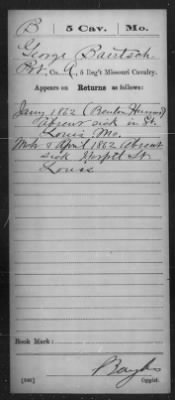 B | 5 Cav. | Mo.
George Bartsch
Pvt, Co. A, 5 Reg't Missouri Cavalry.
Appears on Returns as follows:
Jany 1862 (Benton Hussars)
Absent sick in St.
Louis Mo.
Mch & April 1862 Absent
sick Hospitl St.
Louis
Book Mark:
(546)
Copyist.